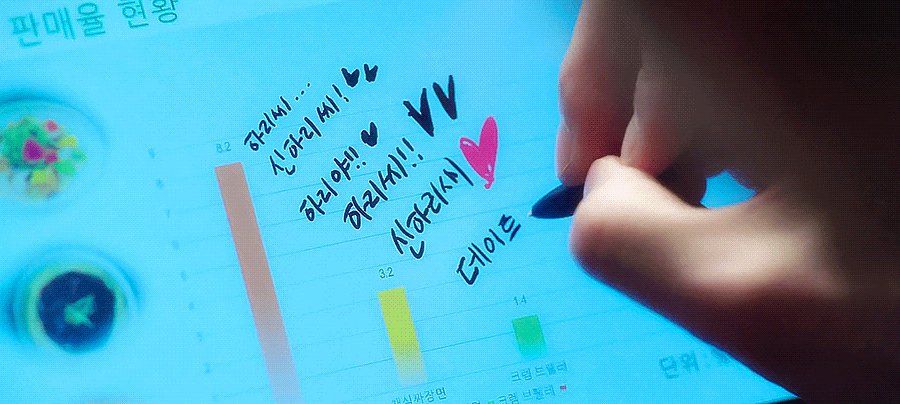 판매율 현황
8.2
하리씨...
신하리씨!
하리야!!
하리씨!!
신하리씨
데이트
3.2
1.4
크림 브륄레
크림 브륄레
단위 :